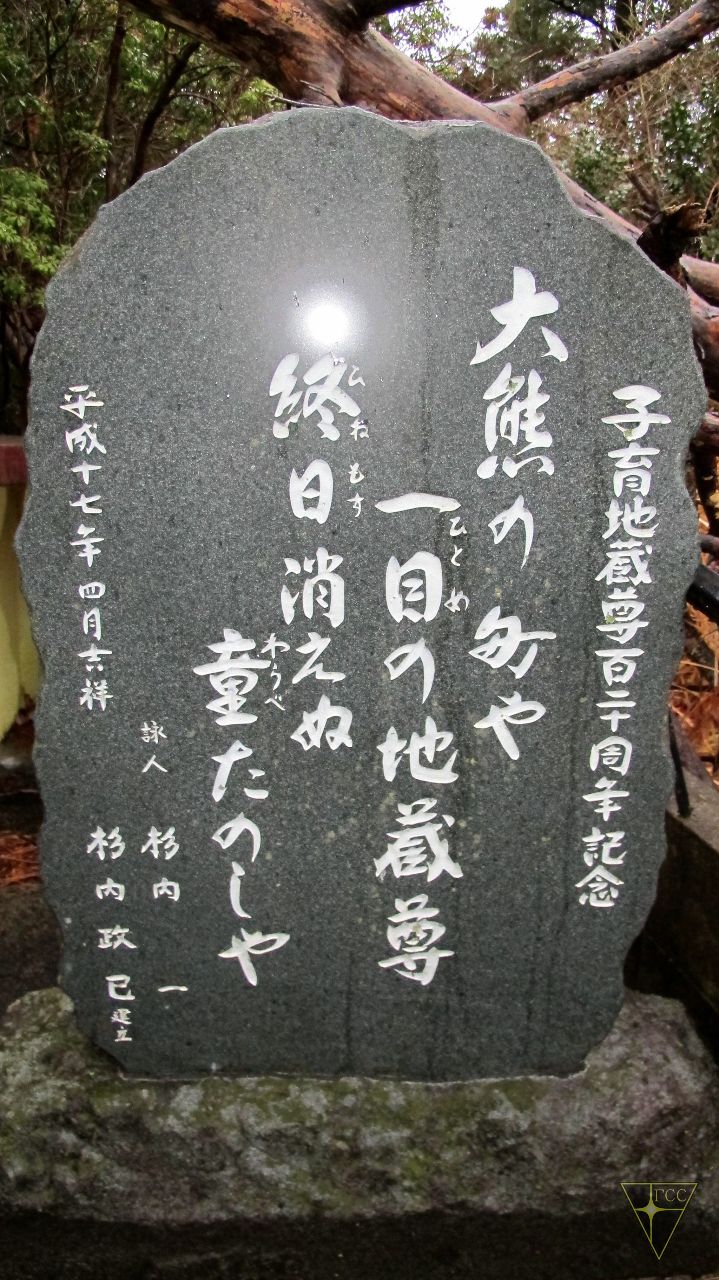 子育地蔵尊百二十周年記念
大熊の町や
一目の地蔵尊
ひとめ
終日消えぬ
ひねもす
童たのしや
わらべ
平成十七年四月吉祥
詠人 杉内 一
杉内政巳建立
ГCC